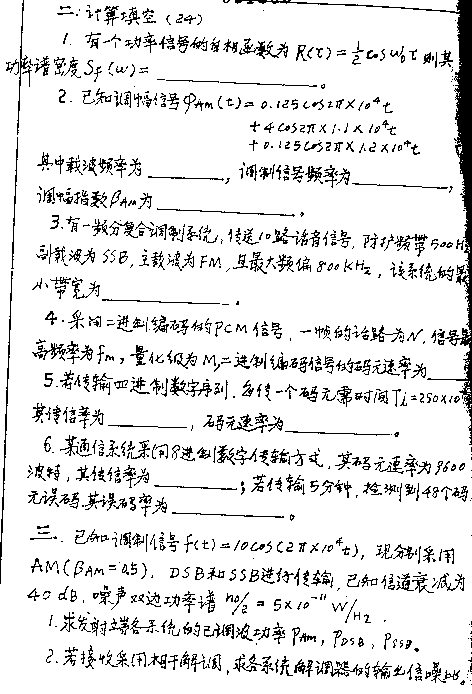 二、计算填空 (24)
1. 有一个功率信号的自相函数为 R(τ) = ½cosω₀τ 则其
功率谱密度 S_f(ω) = ________。
2. 已知调幅信号 φ_AM(t) = 0.125cos2π×10⁴t
+ 4cos2π×1.1×10⁴t
+ 0.125cos2π×1.2×10⁴t
其中载波频率为________, 调制信号频率为________,
调幅指数β_AM为________。
3. 有一频分复合调制系统, 传送10路话音信号, 防护频带500H
副载波为SSB, 主载波为FM, 且最大频偏800KHz, 该系统的最
小带宽为________。
4. 采用二进制编码的PCM信号, 一帧的话路为N, 信号最
高频率为fm, 量化级为M, 二进制编码信号的码元速率为____
5. 若传输四进制数字序列, 每传一个码元需时间Ti=250×10
其传信率为________, 码元速率为________。
6. 某通信系统采用8进制数字传输方式, 其码元速率为3600
波特, 其传信率为________; 若传输5分钟, 检测到48个码
元误码, 其误码率为________。
三、已知调制信号 f(t) = 10cos(2π×10⁴t), 现分别采用
AM(β_AM=0.5), DSB和SSB进行传输, 已知信道衰减为
40dB, 噪声双边功率谱 n₀/2 = 5×10⁻¹¹ W/Hz.
1. 求发射端各系统的已调波功率 P_AM, P_DSB, P_SSB。
2. 若接收采用相干解调, 求各系统解调器的输出信噪比。